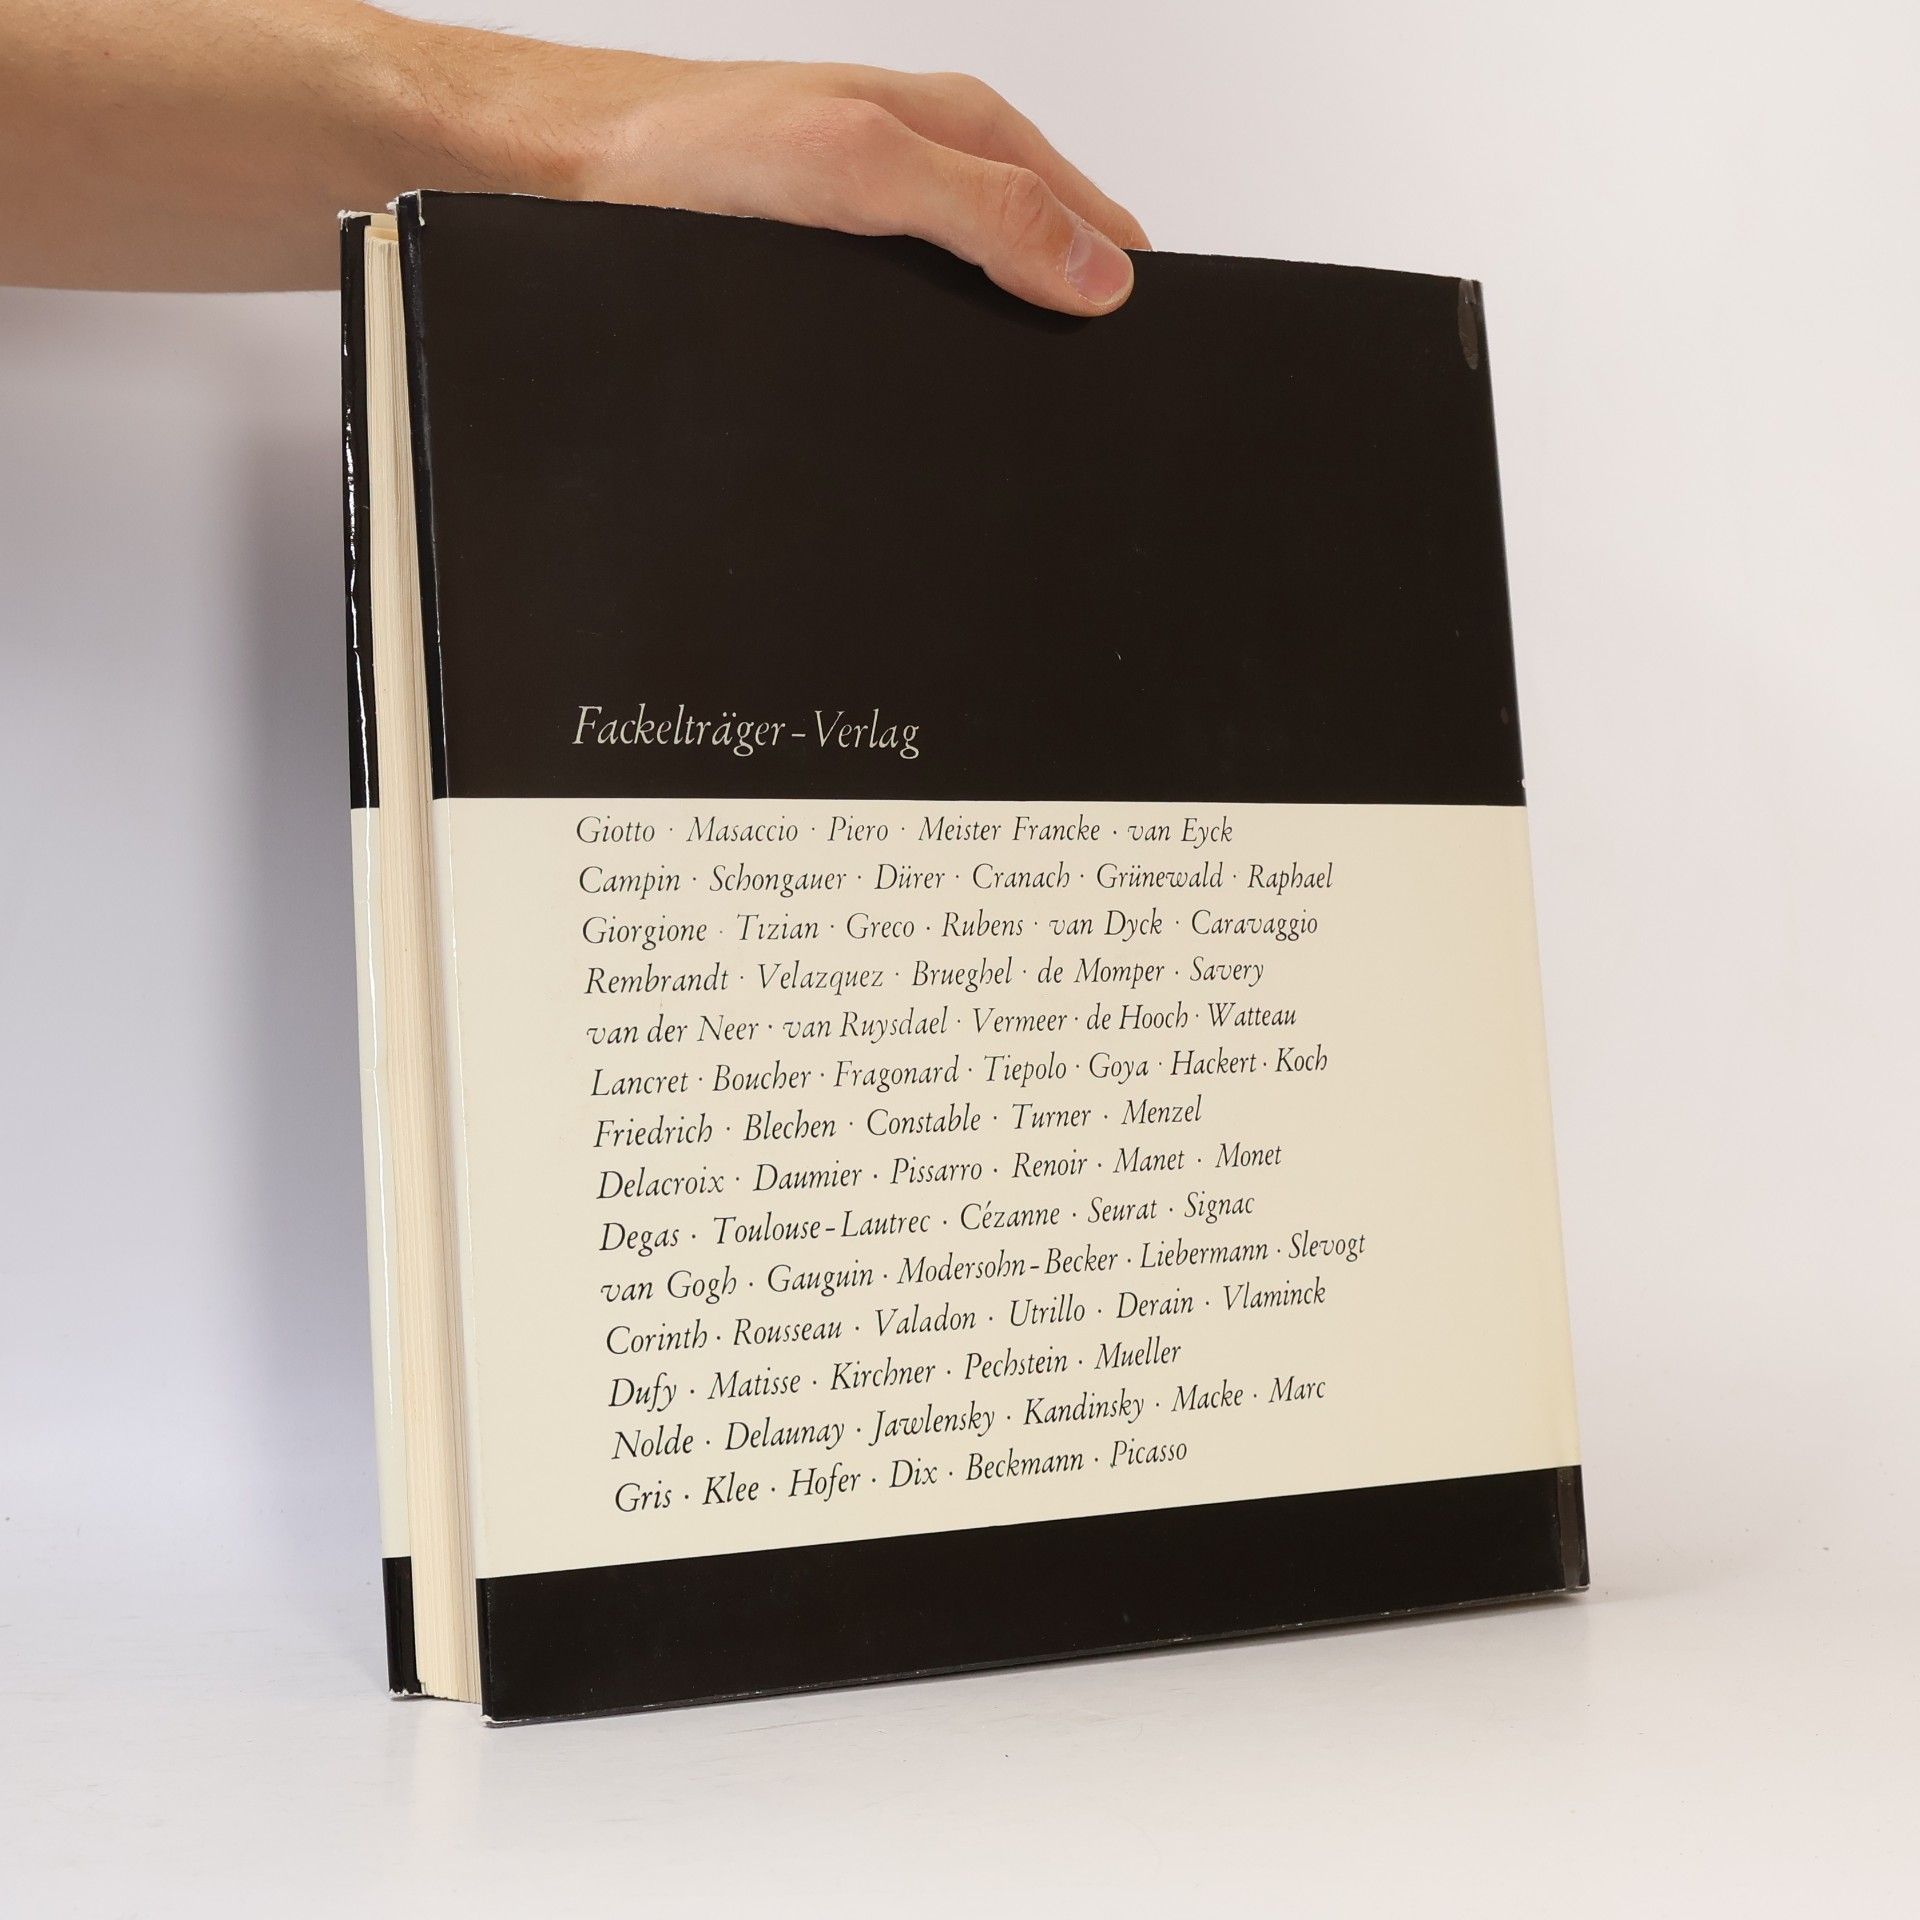 Fackelträger-Verlag
Giotto · Masaccio · Piero · Meister Francke · van Eyck
Campin · Schongauer · Dürer · Cranach · Grünewald · Raphael
Giorgione · Tizian · Greco · Rubens · van Dyck · Caravaggio
Rembrandt · Velazquez · Brueghel · de Momper · Savery
van der Neer · van Ruysdael · Vermeer · de Hooch · Watteau
Lancret · Boucher · Fragonard · Tiepolo · Goya · Hackert · Koch
Friedrich · Blechen · Constable · Turner · Menzel
Delacroix · Daumier · Pissarro · Renoir · Manet · Monet
Degas · Toulouse-Lautrec · Cézanne · Seurat · Signac
van Gogh · Gauguin · Modersohn-Becker · Liebermann · Slevogt
Corinth · Rousseau · Valadon · Utrillo · Derain · Vlaminck
Dufy · Matisse · Kirchner · Pechstein · Mueller
Nolde · Delaunay · Jawlensky · Kandinsky · Macke · Marc
Gris · Klee · Hofer · Dix · Beckmann · Picasso